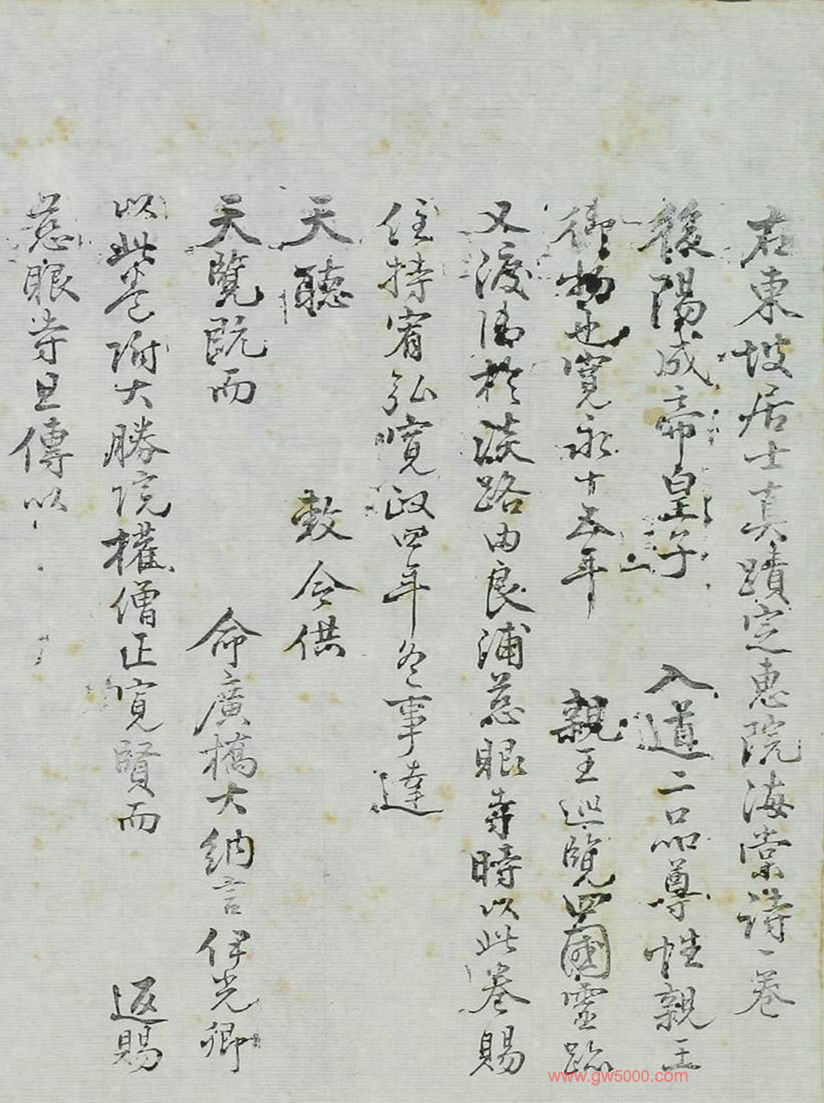 右東坡居士真蹟定惠院海棠詩一卷
後陽成帝皇子 入道二品尊性親王
御物也寬永十五年 親王巡覽四國靈跡
又渡海於淡路由良浦慈眼寺時以此卷賜
住持宥弘寬政四年冬事達
天聽 敕令供
天覽既而 命廣橋大納言伊光卿
以此卷附大勝院權僧正寬賢而 返賜
慈眼寺且傳以
www.gw5000.com